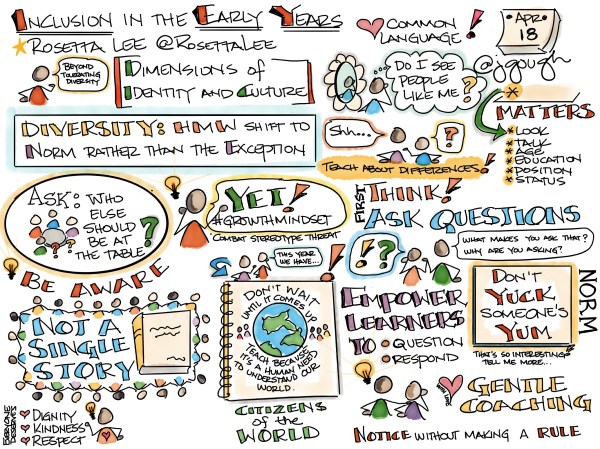 INCLUSION IN THE EARLY YEARS
ROSETTA LEE @ROSETTALEE
BEYOND
TOLERATING
DIVERSITY
DIMENSIONS OF
IDENTITY AND CULTURE
COMMON
LANGUAGE!
APR
18
@jgough
DO I SEE
PEOPLE
LIKE ME?
DIVERSITY: HMW SHIFT TO
NORM RATHER THAN THE EXCEPTION
Shh...
?
TEACH ABOUT DIFFERENCES!
* MATTERS
* LOOK
* TALK
* AGE
* EDUCATION
* POSITION
* STATUS
ASK: WHO
ELSE
SHOULD
BE AT
THE TABLE?
YET!
#GROWTHMINDSET
COMBAT STEREOTYPE THREAT
FIRST THINK!
ASK QUESTIONS
WHAT MAKES YOU ASK THAT?
WHY ARE YOU ASKING?
BE AWARE
THIS YEAR
WE HAVE...
!
!?
NOT A
SINGLE
STORY
DON'T WAIT
UNTIL IT COMES UP
TEACH BECAUSE
IT'S A HUMAN NEED
TO UNDERSTAND OUR
WORLD.
CITIZENS
of the
WORLD
EMPOWER
LEARNERS
TO
QUESTION
RESPOND
DON'T
YUCK
SOMEONE'S
YUM
NORM
THAT'S SO INTERESTING
TELL ME MORE...
EVERYONE
DESERVES
DIGNITY
KINDNESS
RESPECT
GENTLE
COACHING
NOTICE WITHOUT MAKING A RULE